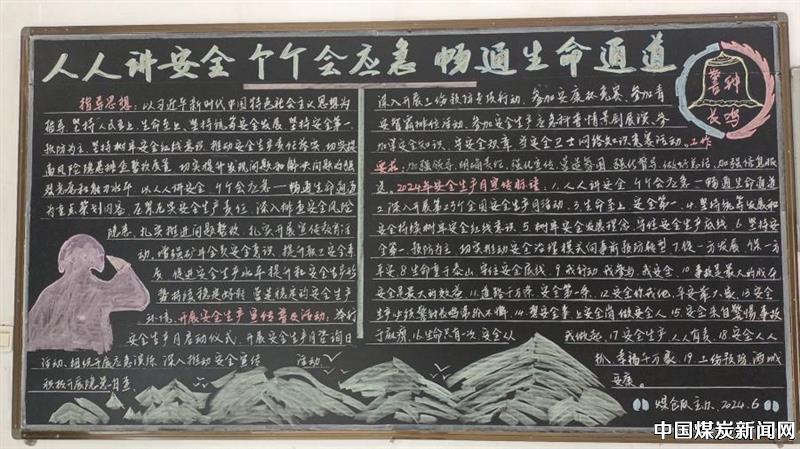 人人讲安全 个个会应急 畅通生命通道
警钟
长鸣
指导思想：以习近平新时代中国特色社会主义思想为
指导，坚持人民至上、生命至上，坚持统筹安全发展，坚持安全第一、
预防为主，坚持树牢安全红线意识，推动安全生产责任落实，切实提
高风险隐患排查整改质量，切实提升发现问题和解决问题的强
烈意愿和能力水平，以人人讲安全 个个会应急—畅通生命通道
为重点策划内容，压紧压实安全生产责任，深入排查安全风险
隐患，扎实推进问题整改，扎实开展宣传教育活
动，增强矿全员安全意识，提升职工安全素
质，促进安全生产水平提升和安全生产形
势持续稳定好转，营造稳定的安全生产
环境。开展安全生产宣传普及活动，举行
安全生产月启动仪式，开展安全生产月咨询日
活动，组织开展应急演练，深入推动安全宣传 活动，
积极开展隐患自查
深入开展工伤预防专项行动，参加安康杯竞赛，参加青
安管岗排查活动，参加安全生产应急科普情景剧展演，参
加寻安全知识、寻安全故事、寻安全卫士网络知识竞赛活动。工作
要求：加强领导，明确责任，强化宣传，营造氛围，强化督导，做好总结，加强信息报
送。2024年安全生产月宣传标语：1.人人讲安全 个个会应急—畅通生命通道
2.深入开展第23个全国安全生产月活动，3.生命至上 安全第一，4.坚持统筹发展和
安全持续树牢安全红线意识 5.树牢安全发展理念，守住安全生产底线，6.坚持安
全第一、预防为主，切实推动安全治理模式向事前预防转型，7.促一方发展，保一方
平安 8.生命重于泰山，守住安全底线，9.我行动 我参与，我安全，10.事故是最大的成本
安全是最大的效益，11.道路千万条，安全第一条，12.安全你我他，平安靠大家，13.安全
生产 14.想安全事 上安全岗 做安全人 15.安全来自警惕 事故
出于麻痹，16.生命只有一次 安全从 我做起，17.安全生产，人人有责，18.安全人人
抓，幸福千万家，19.工伤预防
安康。
煤仓队 主办 2024.6
中国煤炭新闻网